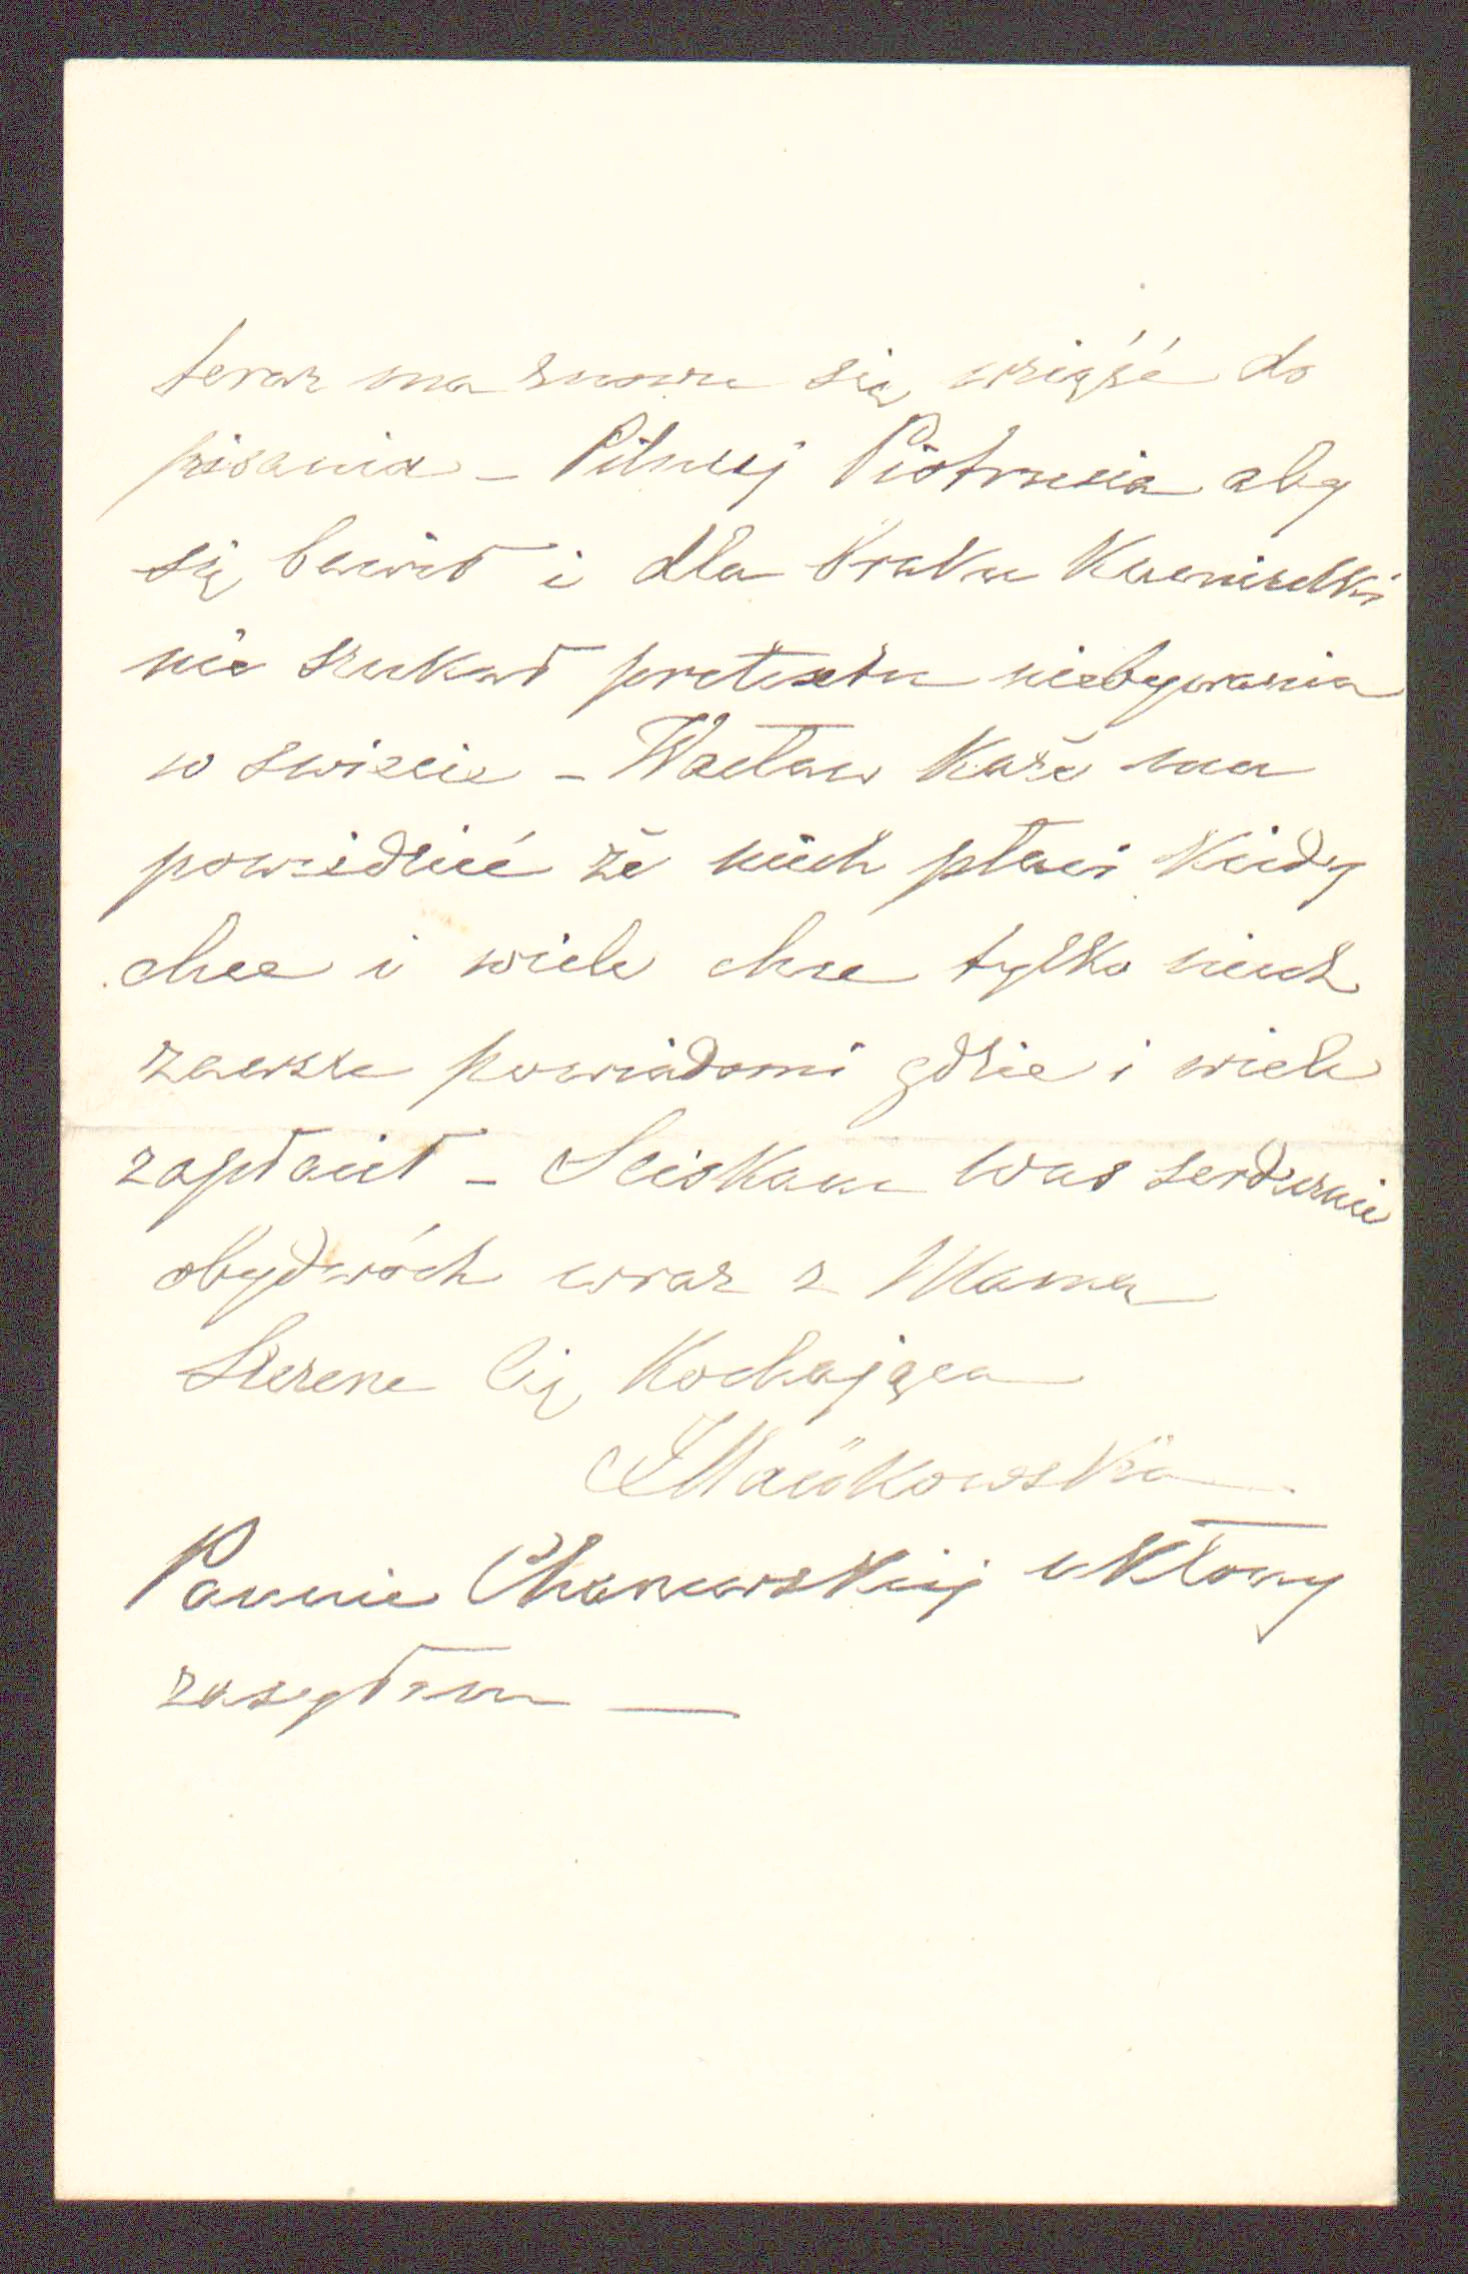 teraz ma znowu się wziąść do
pisania - Pilnuj Piotrusia aby
się bawił i dla braku
nie szukał pretextu niebywania
w swiecie - Wacław każe mu
powiedzieć że niech płaci kiedy
chce i wiele chce tylko niech
zawsze powiadomi gdzie i wiele
zapłacił - Sciskam was serdecznie
obydwóch wraz z Mamą
Szczerze Cię Kochająca
Pannie ukłony
zasyłam —